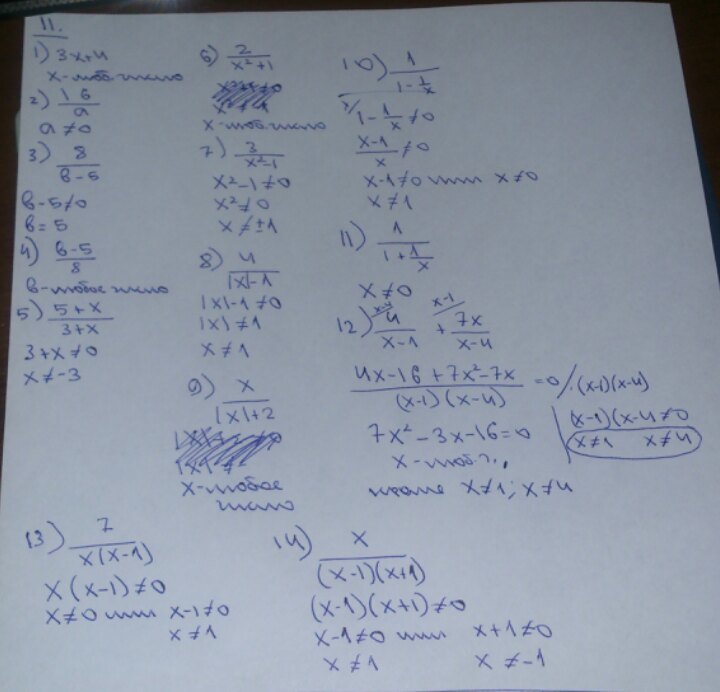 11.
1) 3x+4
x-люб. число
2) 16/a
a ≠ 0
3) 8/(в-5)
в-5≠0
в= 5
4) (в-5)/8
в-любое число
5) (5+x)/(3+x)
3+x≠0
x≠-3
6) 2/(x²+1)
x-люб число
7) 3/(x²-1)
x²-1≠0
x²≠0
x≠±1
8) 4/(|x|-1)
|x|-1≠0
|x|≠1
x≠1
9) x/(|x|+2)
x-любое
число
10) 1/(1-1/x)
1-1/x≠0
(x-1)/x≠0
x-1≠0 или x≠0
x≠1
11) 1/(1+1/x)
x≠0
12) 4/(x-1) + 7x/(x-4)
x-4 x-1
(4x-16+7x²-7x)/((x-1)(x-4)) =0 /·(x-1)(x-4)
(x-1)(x-4≠0
x≠1 x≠4
7x²-3x-16=0
x-люб.ч.,
кроме x≠1; x≠4
13) 7/(x(x-1))
x(x-1)≠0
x≠0 или x-1≠0
x≠1
14) x/((x-1)(x+1))
(x-1)(x+1)≠0
x-1≠0 или x+1≠0
x≠1 x≠-1